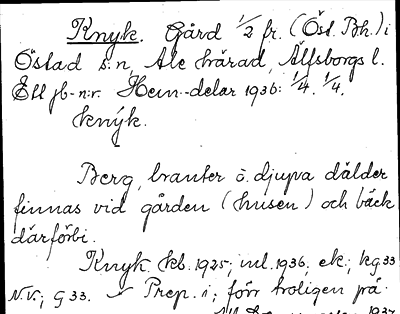 Knyk. Gård 1/2 fr. (Östl. Bh.) i
Östad s:n, Ale härad, Älfsborgs l.
Ett jb-n:r. Hem.-delar 1936: 1/4. 1/4.
knýk.
Berg, branter o. djupa dälder
finnas vid gården (husen) och bäck
därförbi.
Knyk kb. 1925; inl. 1936, ek; kg 33
N.V.; G 33. Prep. i; förr troligen på.
1937